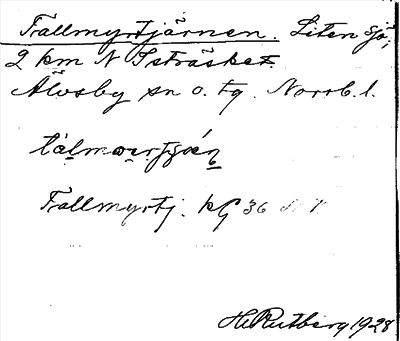 Tallmyrtjärnen. Liten sjö,
2 km N Isträsket.
Älvsby sn o. tg. Norrb. l.
Tallmyrtj. kG 36
H. Rutberg 1928